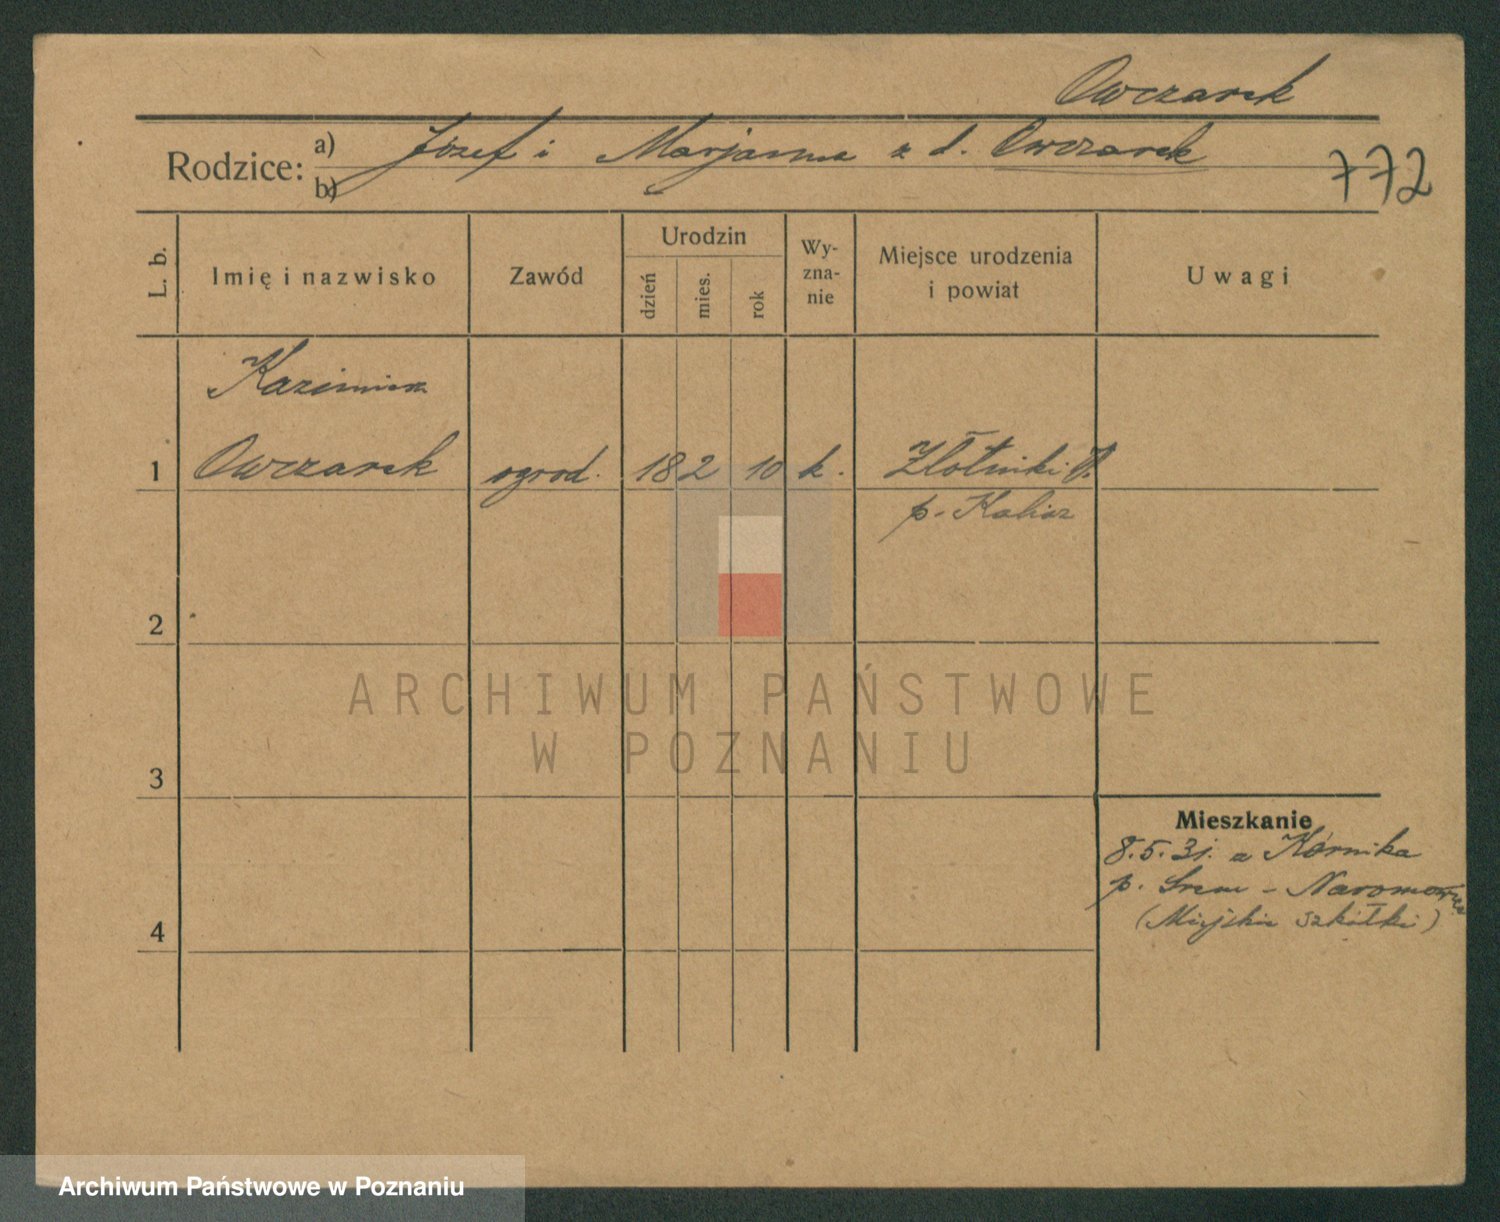 Owczarek
Rodzice: a) Józef i Marjanna z d. Owczarek
b)
772
L. b.
Imię i nazwisko
Zawód
Urodzin
dzień
mies.
rok
Wy-
zna-
nie
Miejsce urodzenia
i powiat
Uwagi
Kazimierz
1 Owczarek ogrod. 18 2 10 k. Złotniki
p. Kalisz
2
ARCHIWUM PAŃSTWOWE
W POZNANIU
3
Mieszkanie
8.5.31. z Kórnika
p. Śrem - Naramowice
(Miejskie szkółki)
4
Archiwum Państwowe w Poznaniu